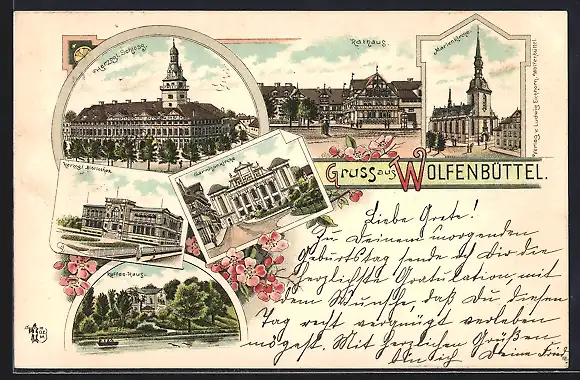 Herzogl. Schloss.
Rathaus.
Marienkirche.
Verlag v. Ludwig Eichhorn, Wolfenbüttel.
Herzogl. Bibliothek.
Garnisonkirche
Kaffee-Haus.
GRUSS aus WOLFENBÜTTEL.
Liebe Grete!
Zu Deinem morgenden
Geburtstag sende ich Dir die
herzlichste Gratulation, mit
dem Wunsche, daß Du diesen
Tag recht vergnügt verleben
mögest. Mit herzlichen Grüßen
bin ich Deine